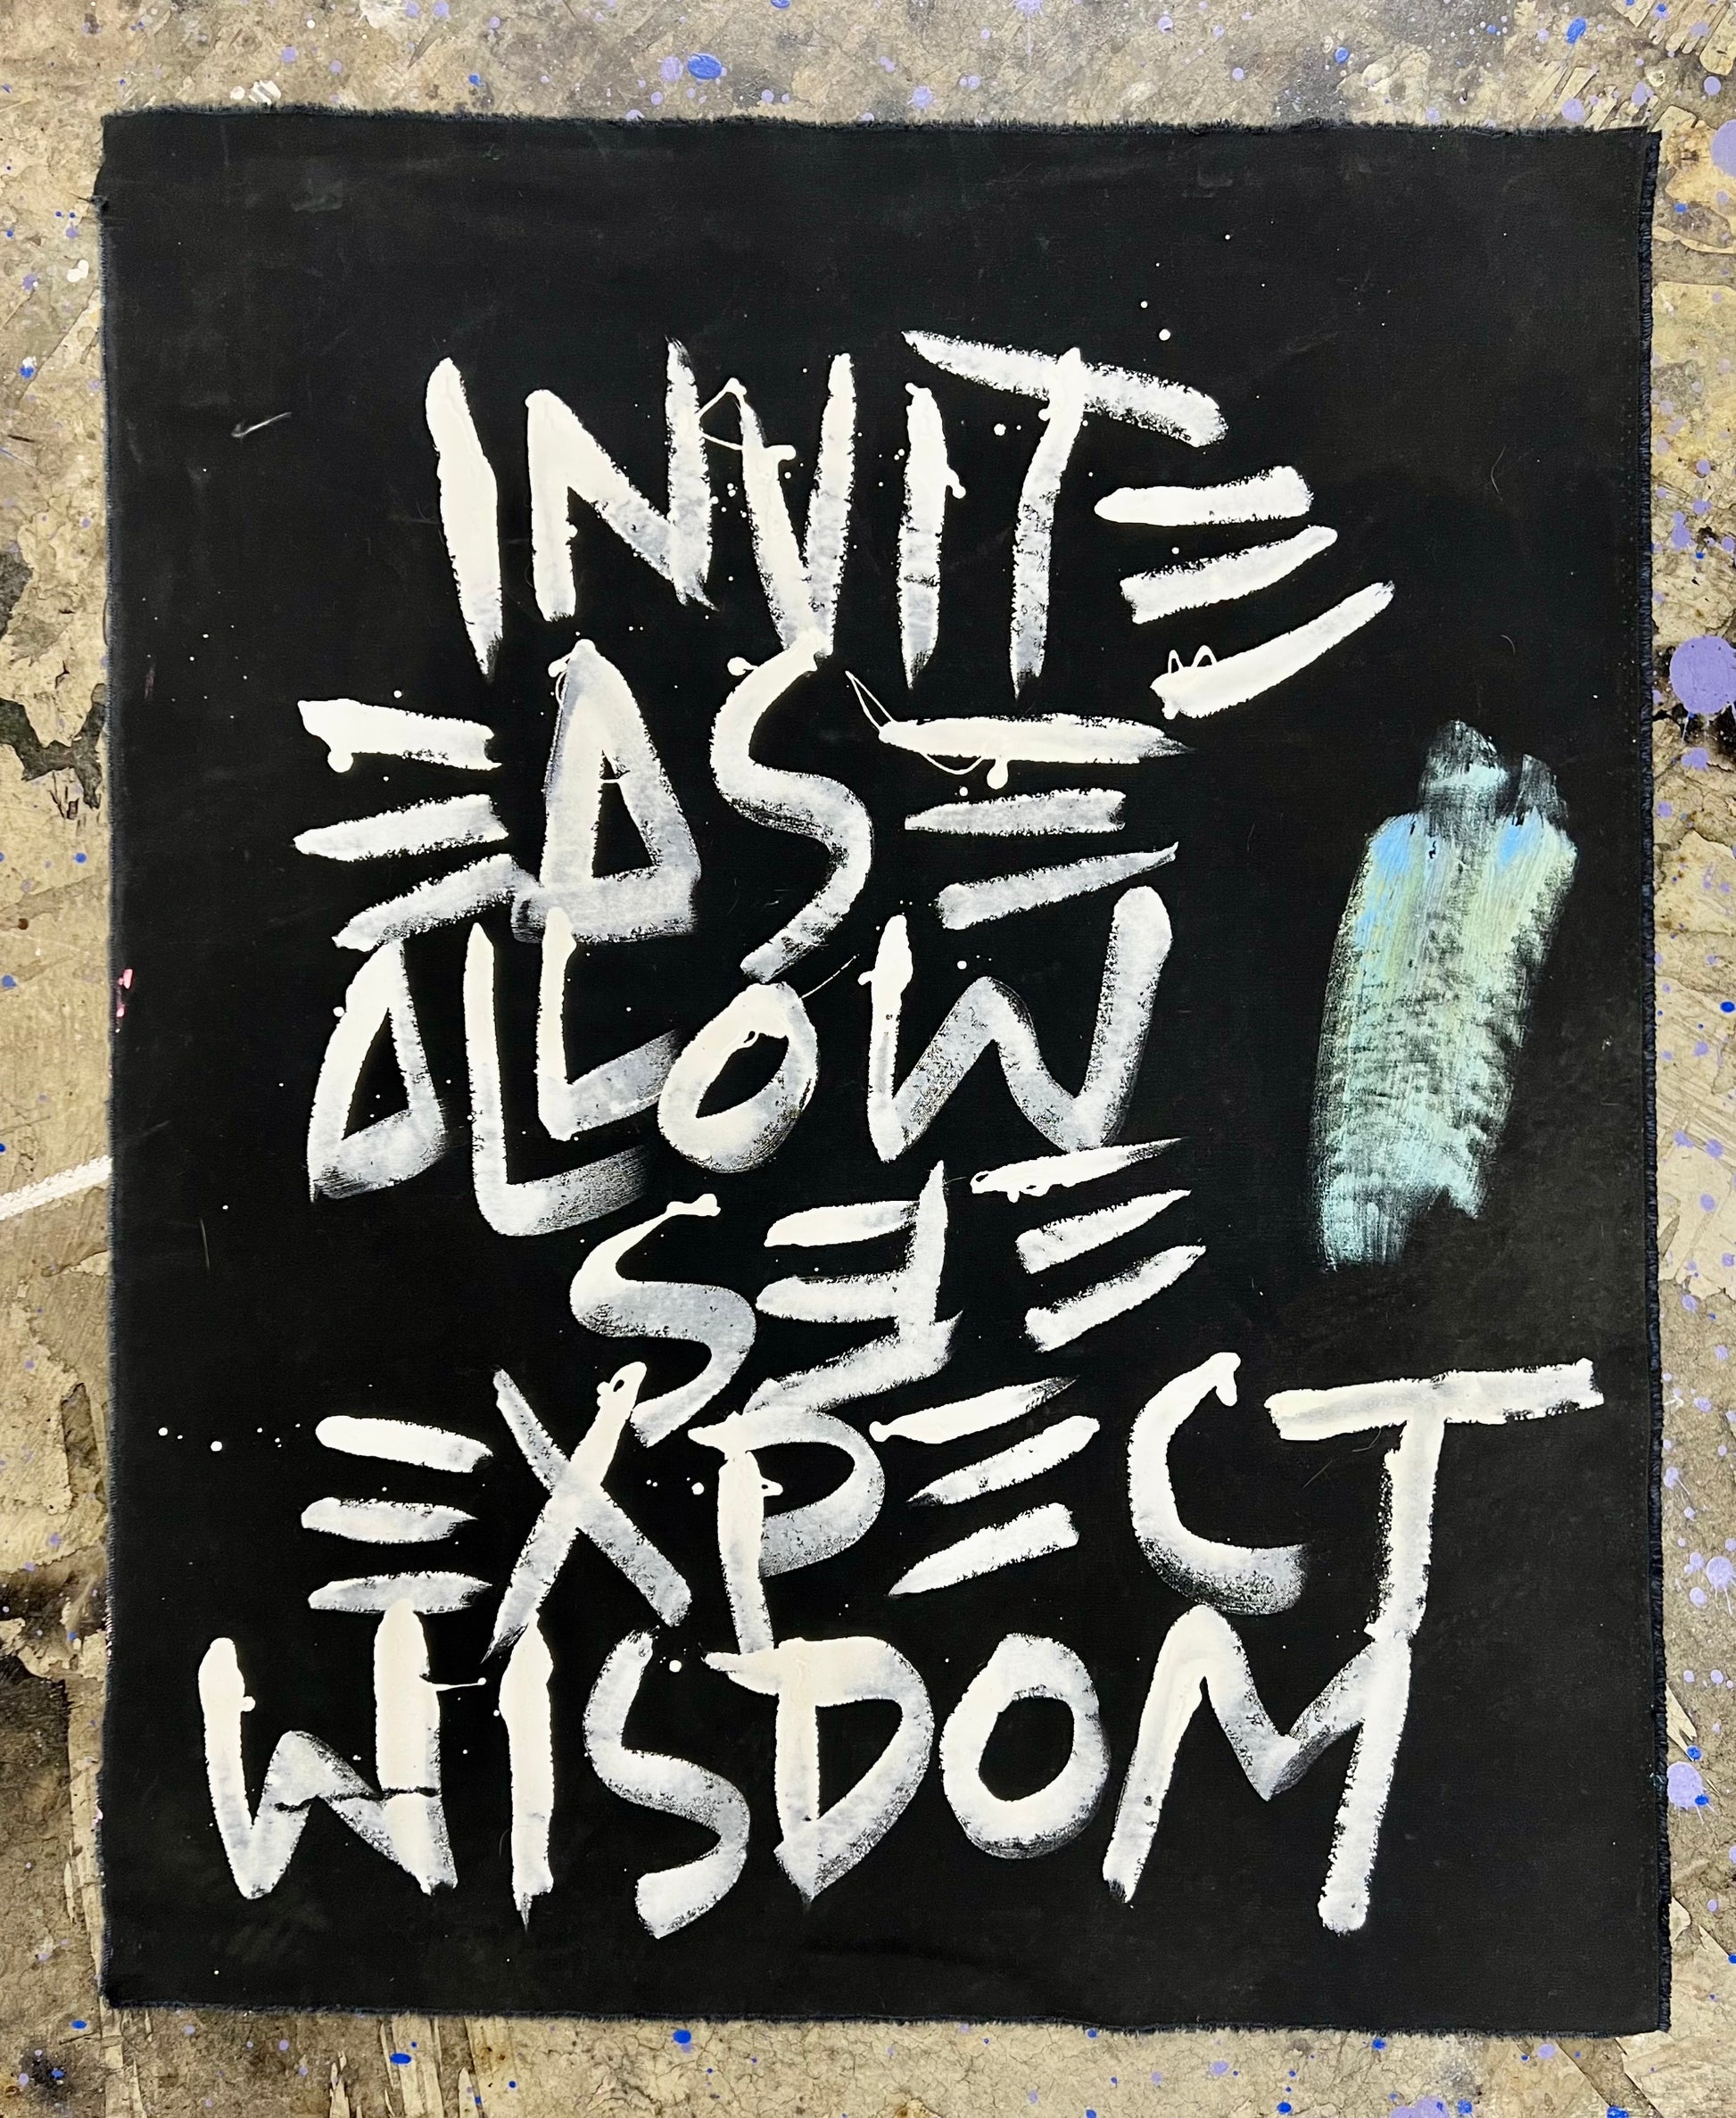 INVITE
EASE
ALLOW
SEE
EXPECT
WISDOM